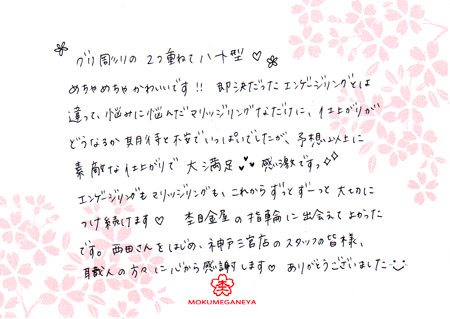 グリ彫りの 2つ重ねて ハート型♡
めちゃめちゃかわいいです!! 即決だったエンゲージリングとは
違って、悩みに悩んだマリッジリングなだけに、仕上がりが
どうなるか期待と不安でいっぱいでしたが、予想以上に
素敵な仕上がりで大満足 感激ですっ
エンゲージリングもマリッジリングも、これからずっとずーっと大切に
つけ続けます♡ 杢目金屋の指輪に出会えてよかった
です。西田さんをはじめ、神戸三宮店のスタッフの皆様、
職人の方々に心から感謝します♡ ありがとうございました
杢
MOKUMEGANEYA